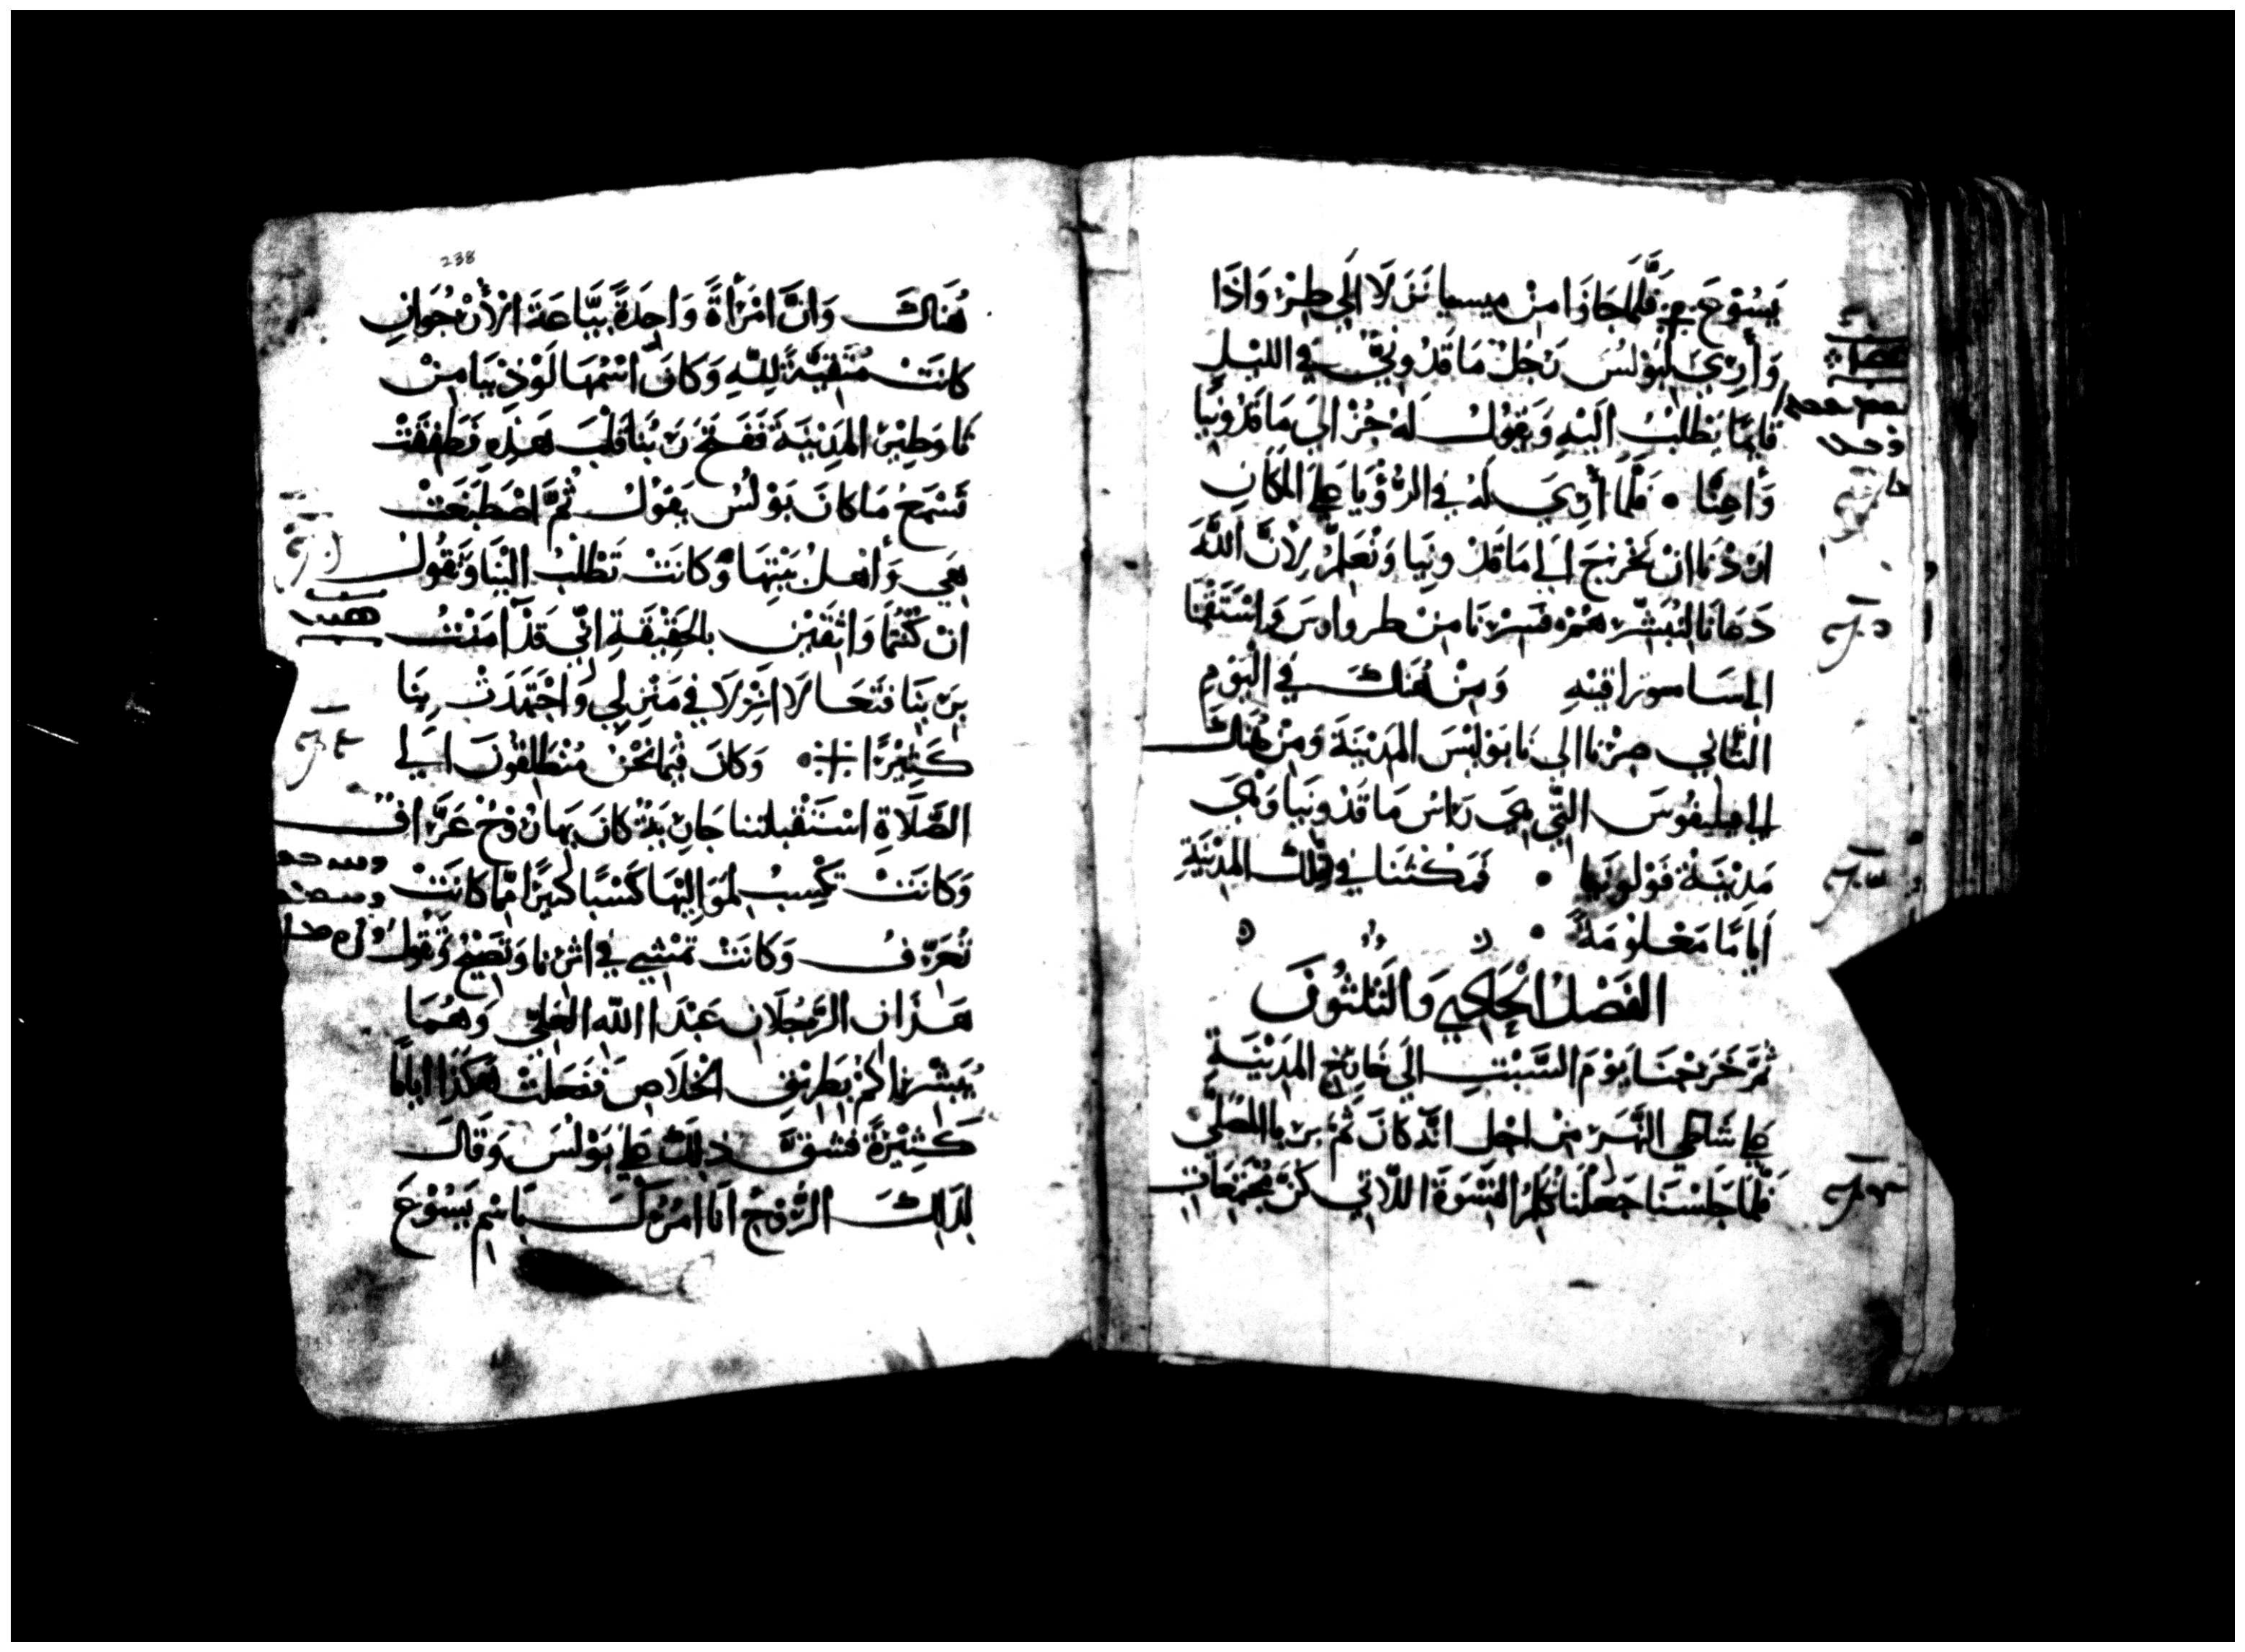 يَسُوْعَ ۞ فَلَمَّا جَازَا مِنْ ميسيا نَزَلَا اِلَي طِرْوَاذَا
وَأُرِيَ لِبَوْلُسَ رَجُلْ مَاقَدُونيّ في الليْلِ
قَايمًا يَطْلُبُ اِلَيْهِ وَيَقُولُ لَهُ جُزْ اِلَيَ مَاقَدُونِيَا
وَأعِنَّا • فَلَمَّا أُرِيَ لَهُ فِي الرُّؤْيَا عَلَي المَكَانِ
ارَدْنَا انْ نَخْرُجَ اِلَي مَاقَدُونِيَا وَنُعَلِّمُ لِأَنَّ اللَّهَ
دَعَانَا لِنُبَشِّرَهُمْ ۞ فَسِرْنَا مِنْ طرواوس وَاسْتَقَمْنَا
الى ساموراقيه وَمِنْ هُنَاكَ فِي الْيَوْمِ
الثَّانِي صِرْنَا اِلَي نَابَوْلِيْسَ المَدِيْنَةَ وَمِنْ هُنَاكَ
الى فيليفوسَ التِّي هِيَ رَاسُ مَاقَدُونِيَا وَهْيَ
مَدِيْنَةُ قَوْلُونِيَا • فَمَكَثْنَا فِي تِلْكَ المَدِيْنَةِ
اَيَّامًا مَعْلُومَةً •
الفَصْلُ الْحَادِي وَالثَلثُونَ
ثُمَّ خَرَجْنَا يَوْمَ السَّبْتِ اِلَي خَارِجِ المَدِيْنَةِ
عَلَي شَاطِي النَّهَرِ مِنْ اجْلِ انَّهُ كَانَ ثَمَّ يرى بها المُصَلَّى
فَلَمَّا جَلَسْنَا جَعَلْنَا نُكَلِّمُ النِّسْوَةَ اللاتِي كُنَّ مُجْتَمِعَاتٍ
238
هُنَاكَ وَانَّ امْرَأةً وَاحِدَةً بَيَّاعَةَ الأُرْجُوَانِ
كَانَتْ مُتَّقِيَةً لِلَّهِ وَكَانَ اسْمُهَا لَوْذِيَا مِنْ
ثاوَطِيْرَ المَدِيْنَةَ فَفَتَحَ رَبُّنَا قَلْبَ هَذِهِ فَطَفِقَتْ
تَسْمَعُ مَا كَانَ بَوْلُسُ يَقُولُ ثُمَّ اصْطَبَغَتْ
هِي وَأهْلُ بَيْتِهَا وَكَانَتْ تَطْلُبُ اِلَيْنَا وَتَقُولُ
انْ كُنْتُمَا وَاثِقَيْنِ بِالْحَقِيْقَةِ انِّي قَدْ آمَنْتُ
بِرَبِّنَا فَتَعَالَا انْزِلَا فِي مَنْزِلِي وَاجْتَهَدَتْ بِنَا
كَثِيْرًا ۞ وَكَانَ فِيْمَا نَحْنُ مُنْطَلِقُونَ اِلَي
الصَّلَاةِ اسْتَقْبَلَتنا جَارِيَةٌ كَانَ بِهَا رُوْحُ عَرَّافْ
وَكَانَتْ تُكْسِبُ لِمَوَالِيْهَا كَسْبًا كَبِيْرًا مِمَّا كَانَتْ
تُعَرِّفُ وَكَانَتْ تَمْشِي فِي اثَرِنَا وَتَصِيْحُ وَتَقُولُ
هَذَانِ الرَّجُلَانِ عَبْدَا اللّهِ الْعَلِيّ وَهُمَا
يُبَشِّرَانِكُمْ بِطَرِيْقِ الْخَلَاصِ فَفَعَلَتْ هَكَذَا ايَّامًا
كَثِيْرَةً فَشَقَّ ذَلِكَ عَلَي بَوْلُسَ وَقَالَ
لِذَلِكَ الرُّوْحُ اَنَا امُرُكَ بَاسْمِ يَسُوْعَ